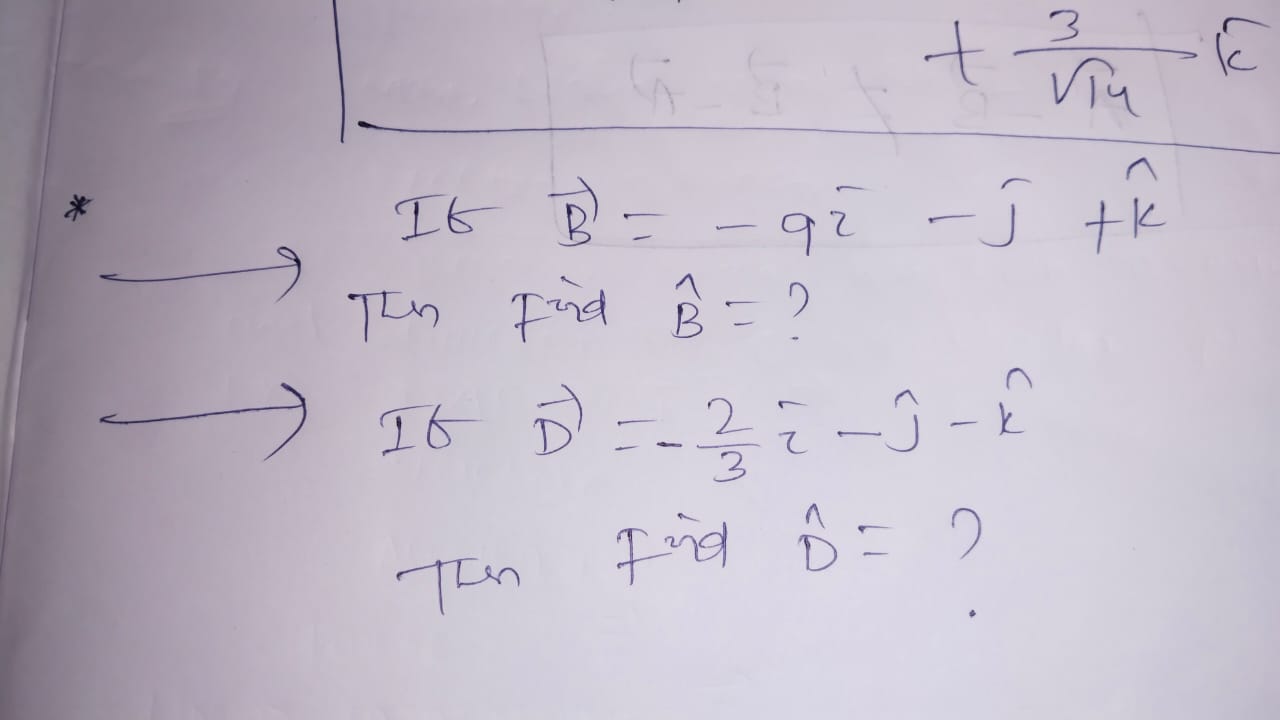 + 3/√14 k̂
* If B⃗ = - 9î - ĵ + k̂
Then Find B̂ = ?
If D⃗ = - 2/3 î - ĵ - k̂
Then Find D̂ = ?